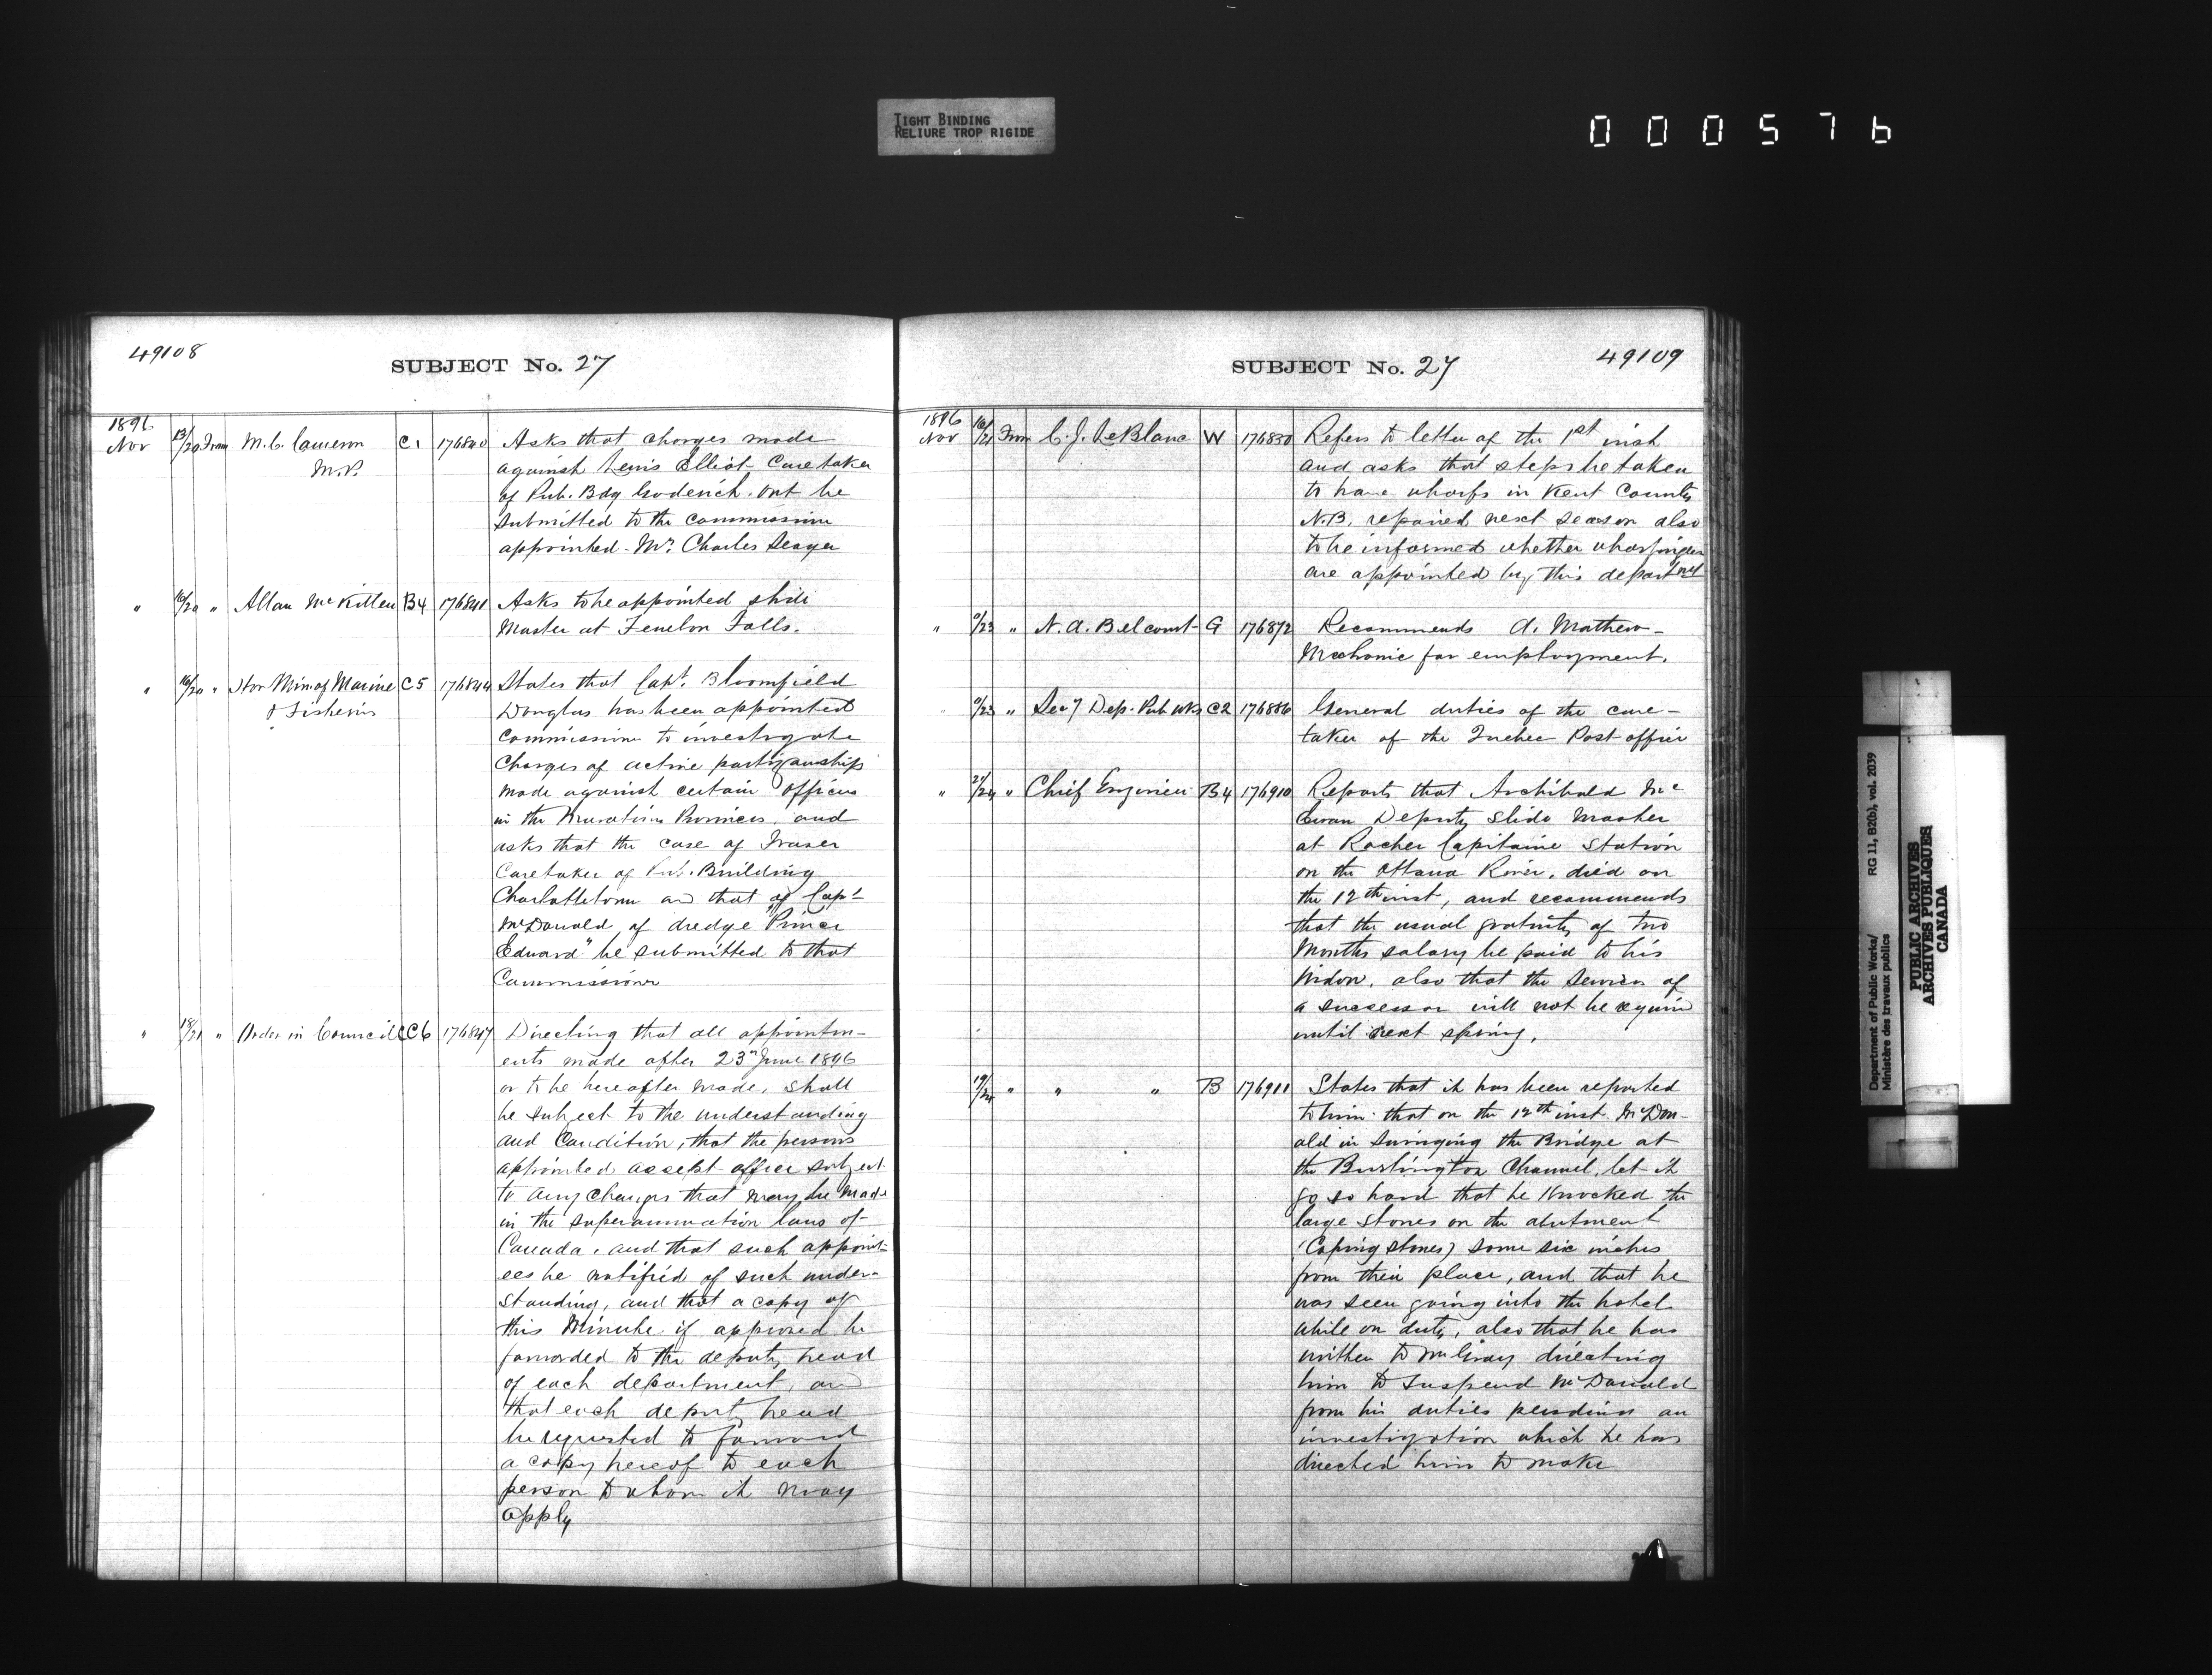 TIGHT BINDING
RELIURE TROP RIGIDE
000576
49108
SUBJECT No. 27
1896
Nov 13/20 From M. C. Cameron C1 176840 Asks that charges made
M.P. against Lewis Elliot Caretaker
of Pub. Bdg Goderich. Ont be
submitted to the Commissioner
appointed - Mr. Charles Seager
" 16/20 " Allan McKillen B4 176841 Asks to be appointed slide
Master at Fenelon Falls.
" 16/20 " Hon Min of Marine C5 176844 States that Capt. Bloomfield
& Fisheries Douglas has been appointed
Commissioner to investigate
Charges of active partizanship
made against certain officers
in the Maritime Provinces, and
asks that the case of Fraser
Caretaker of Pub. Building
Charlottetown and that of Capt
McDonald, of dredge "Prince
Edward" be submitted to that
Commissioner
" 18/21 " Order in Council CC6 176847 Directing that all appointm-
ents made after 23rd June 1896
or to be hereafter made, shall
be subject to the understanding
and Condition, that the persons
appointed accept office subject
to any changes that may be made
in the superannuation laws of
Canada, and that such appoint-
ees be notified of such under-
standing, and that a copy of
this Minute if approved be
forwarded to the deputy head
of each department, and
that each deputy head
be requested to forward
a copy hereof to each
person to whom it may
apply
SUBJECT No. 27
49109
1896
Nov 16/21 From C. J. LeBlanc W 176850 Refers to letter of the 1st inst
and asks that steps be taken
to have wharfs in Kent County
N.B. repaired next season also
to be informed whether wharfingers
are appointed by this departmt
" 0/23 " N. A. Belcourt G 176872 Recommends A. Mathew-
Mechanic for employment.
" 0/23 " Secy Dep. Pub Wks C2 176886 General duties of the care-
taker of the Quebec Post office
" 21/24 " Chief Engineer B4 176910 Reports that Archibald Mc
Ewan Deputy Slide Master
at Rocher Capitaine Station
on the Ottawa River, died on
the 12th inst, and recommends
that the usual gratuity of two
Months salary be paid to his
Widow, also that the services of
a successor will not be required
until next spring.
19/24 " " " B 176911 States that it has been reported
to him that on the 12th inst. McDon-
ald in swinging the Bridge at
the Burlington Channel, let it
go so hard that he knocked the
large stones on the abutment
(Coping stones) some six inches
from their place, and that he
was seen going into the hotel
while on duty, also that he has
written to Mr Gray directing
him to suspend McDonald
from his duties pending an
investigation which he has
directed him to make
Department of Public Works/ RG 11, B2(b), vol. 2039
Ministère des travaux publics
PUBLIC ARCHIVES
ARCHIVES PUBLIQUES
CANADA